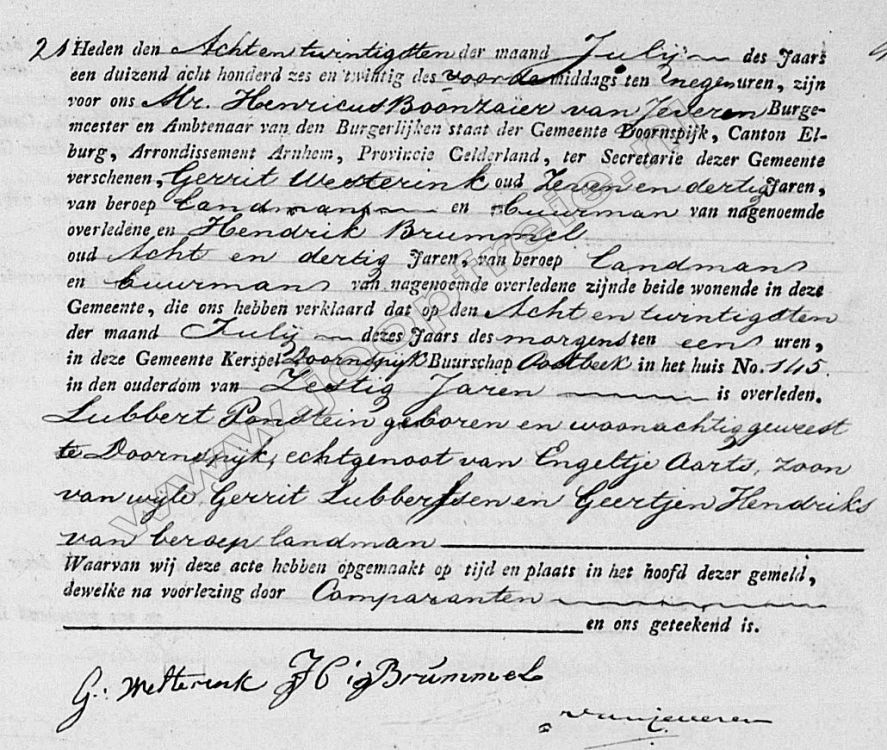 21 Heden den Acht en twintigsten der maand Julij des Jaars
een duizend acht honderd zes en twintig des voor de middags ten negen uren, zijn
voor ons Mr. Henricus Boonzaïer van Jeveren Burge-
meester en Ambtenaar van den Burgerlijken staat der Gemeente Doornspijk, Canton El-
burg, Arrondissement Arnhem, Provincie Gelderland, ter Secretarie dezer Gemeente
verschenen, Gerrit Westerink oud Zeven en dertig Jaren,
van beroep landmans en buurman van nagenoemde
overledene en Hendrik Brummel
oud Acht en dertig Jaren, van beroep landmans
en buurmans van nagenoemde overledene zijnde beide wonende in deze
Gemeente, die ons hebben verklaard dat op den Acht en twintigsten
der maand Julij dezes Jaars des morgens ten een uren,
in deze Gemeente Kerspel Doornspijk Buurschap Oostbeek in het huis No. 145.
in den ouderdom van Zestig Jaren is overleden.
Lubbert Pondstein geboren en woonachtig geweest
te Doornspijk, echtgenoot van Engeltje Aarts, zoon
van wijle Gerrit Lubbertsen en Geertjen Hendriks
van beroep landman
Waarvan wij deze acte hebben opgemaakt op tijd en plaats in het hoofd dezer gemeld,
dewelke na voorlezing door Comparanten
en ons geteekend is.
G: Westerink H Brummel
van jeveren